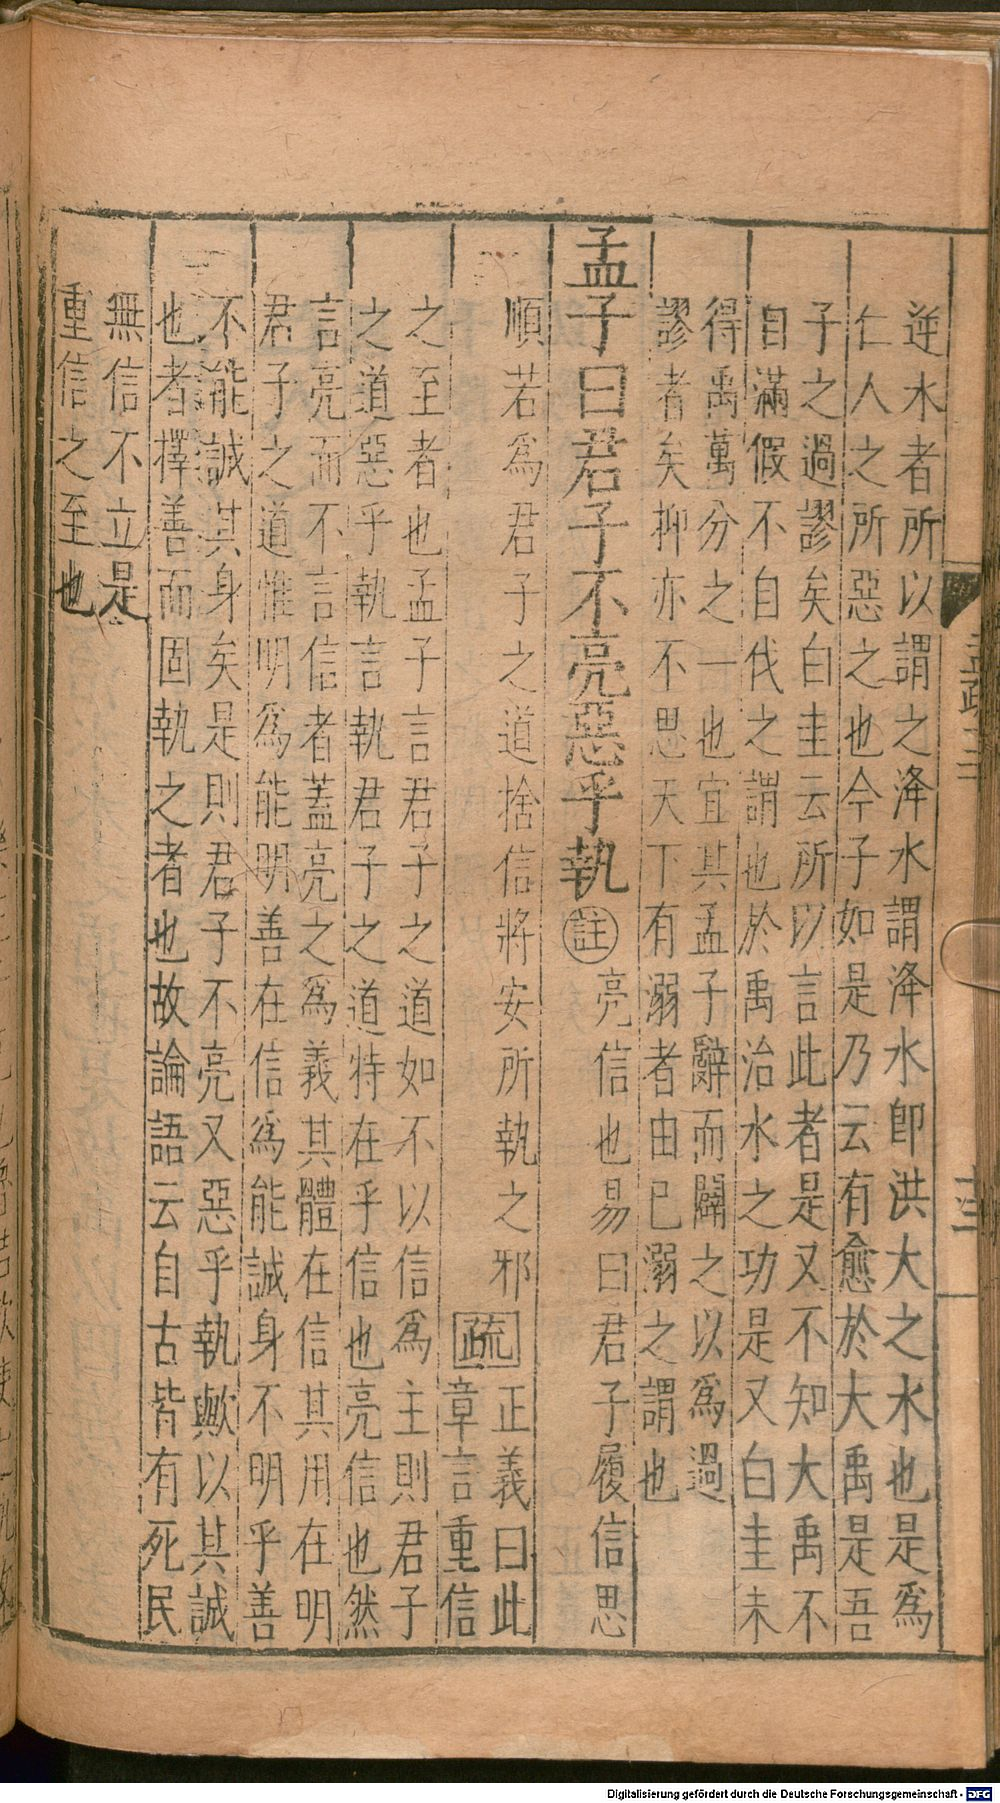 逆水者所以謂之洚水謂洚水卽洪大之水也是爲
仁人之所惡之也今子如是乃云有愈於大禹是吾
子之過謬矣白圭云所以言此者是又不知大禹不
自滿假不自伐之謂也於禹治水之功是又白圭未
得禹萬分之一也宜其孟子辭而闢之以爲過
謬者矣抑亦不思天下有溺者由已溺之謂也
孟子曰君子不亮惡乎執
註
亮信也易曰君子履信思
順若爲君子之道捨信將安所執之邪
疏
正義曰此
章言重信
之至者也孟子言君子之道如不以信爲主則君子
之道惡乎執言執君子之道特在乎信也亮信也然
言亮而不言信者蓋亮之爲義其體在信其用在明
君子之道惟明爲能明善在信爲能誠身不明乎善
不能誠其身矣是則君子不亮又惡乎執歟以其誠
也者擇善而固執之者也故論語云自古皆有死民
無信不立是
重信之至也
孟疏十二
十三
Digitalisierung gefördert durch die Deutsche Forschungsgemeinschaft - DFG